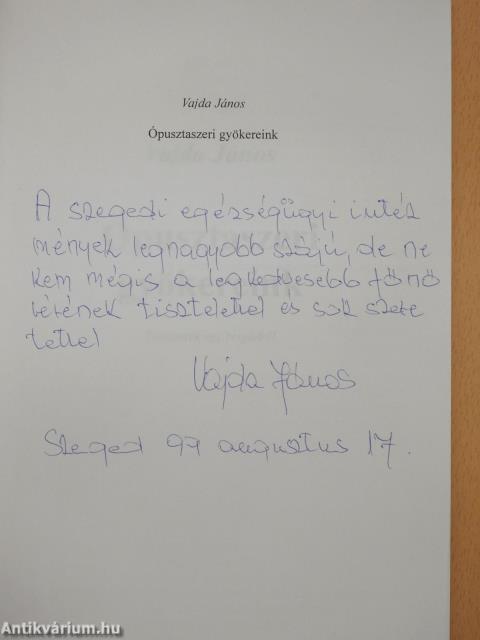 Vajda János
Ópusztaszeri gyökereink
A szegedi egészségügyi intéz
mények legnagyobb szájú, de ne
kem mégis a legkedvesebb főnő
vérének tisztelettel és sok szere
tettel
Vajda János
Szeged 99 augusztus 17.
Antikvárium.hu